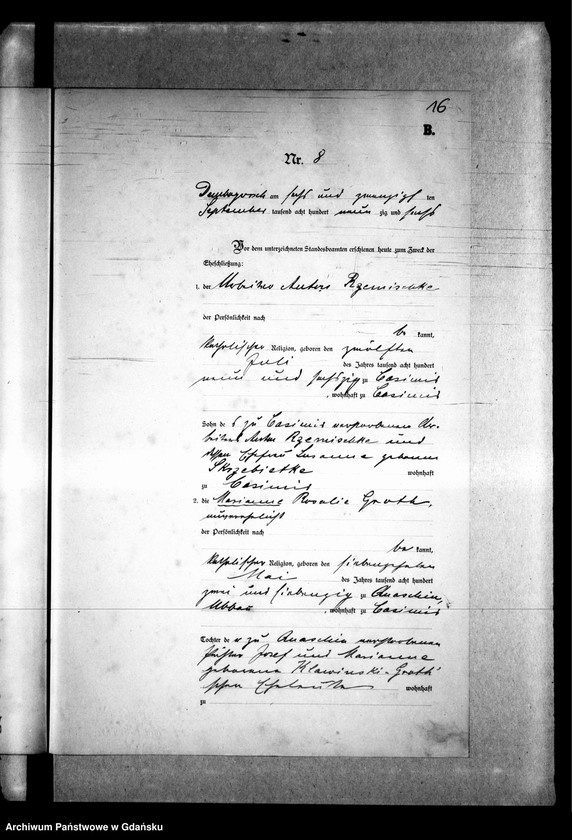 16
B.
Nr. 8
Dembogorsch am sechs und zwanzigsten
September tausend acht hundert neun zig und sechs
Vor dem unterzeichneten Standesbeamten erschienen heute zum Zweck der
Eheschließung:
1. der Arbeiter Anton Rzemischke
der Persönlichkeit nach
be kannt,
katholischer Religion, geboren den zwölften
Juli des Jahres tausend acht hundert
neun und sechszig zu Casimir
, wohnhaft zu Casimir
Sohn des zu Casimir verstorbenen Ar-
beiters Anton Rzemischke und
dessen Ehefrau Susanna geborenen
Skrzebietke wohnhaft
zu Casimir
2. die Marianne Rosalie Groth,
unverehelicht
der Persönlichkeit nach
be kannt,
katholischer Religion, geboren den siebenzehnten
Mai des Jahres tausend acht hundert
zwei und siebenzig zu Anaschin,
Abbau , wohnhaft zu Casimir
Tochter der zu Anaschin verstorbenen
Josef und Marianne
geborene Klawinski-Groth'
schen Eheleute wohnhaft
zu
Archiwum Państwowe w Gdańsku